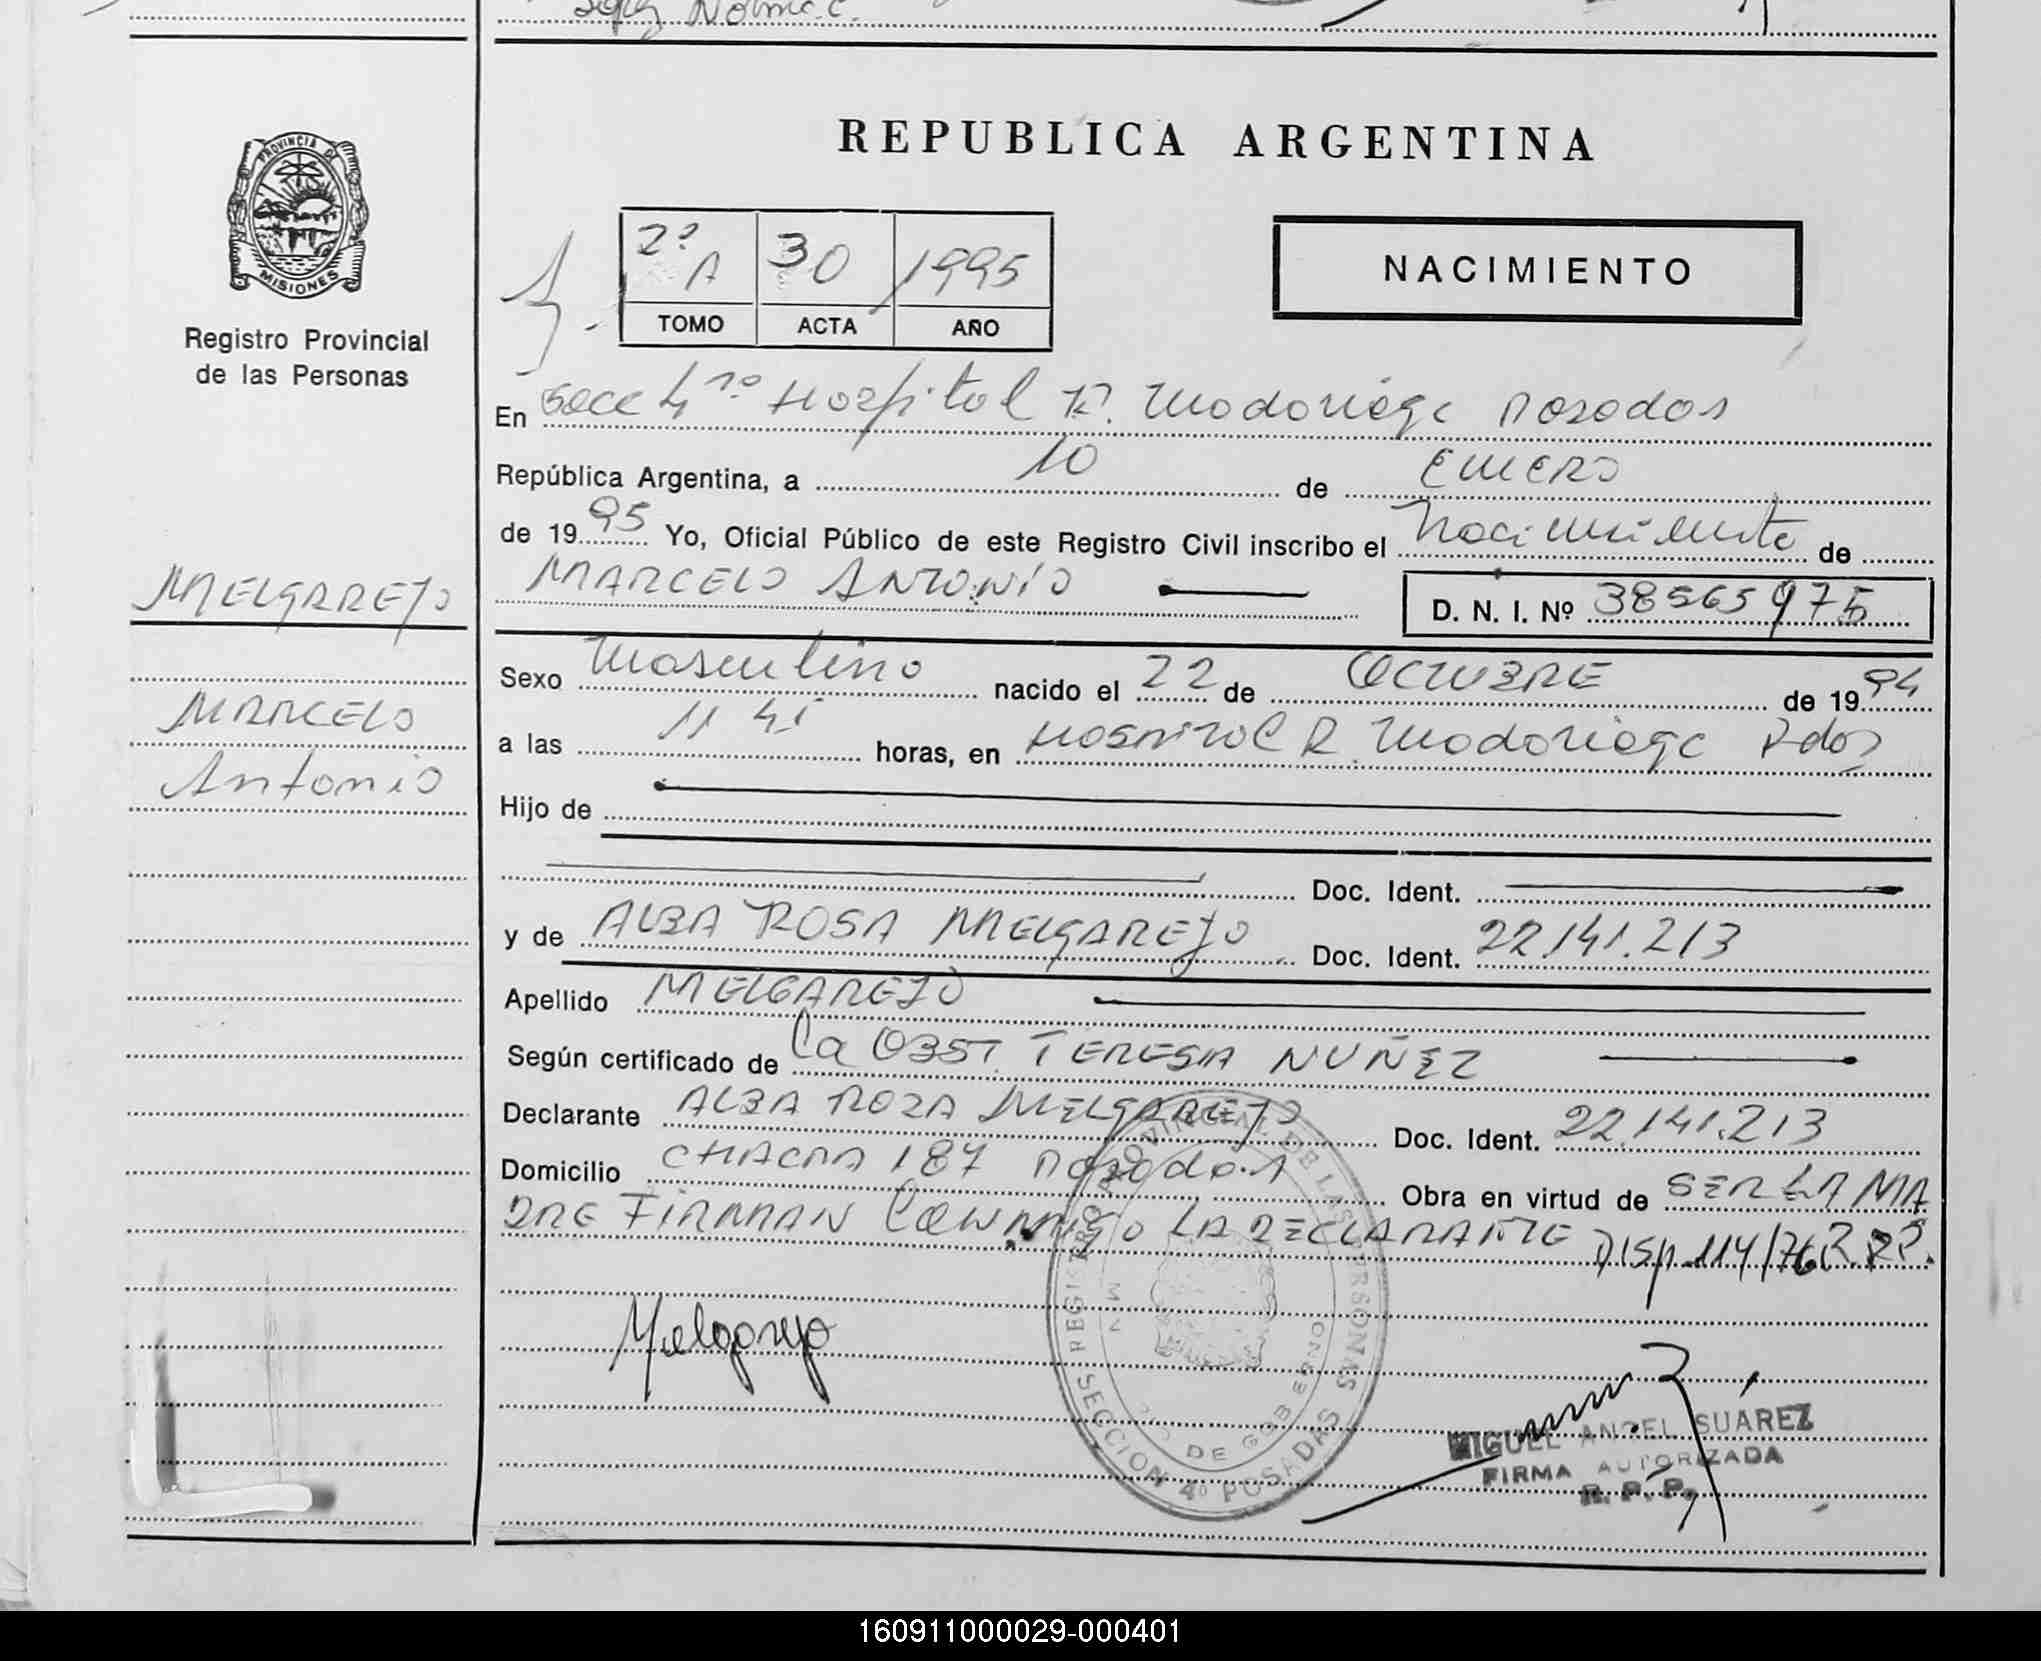 Norma.C.
PROVINCIA DE
MISIONES
Registro Provincial
de las Personas
MELGAREJO
MARCELO
Antonio
REPUBLICA ARGENTINA
2º A 30 1995
TOMO ACTA AÑO
NACIMIENTO
En Secc 4º Hospital R. Madariaga Posadas
República Argentina, a 10 de ENERO
de 1995 Yo, Oficial Público de este Registro Civil inscribo el Nacimiento de
MARCELO ANTONIO D. N. I. Nº 38565975
Sexo Masculino nacido el 22 de OCTUBRE de 1994
a las 11 45 horas, en HOSPITAL R. Madariaga Pdas
Hijo de
Doc. Ident.
y de ALBA ROSA MELGAREJO Doc. Ident. 22.141.213
Apellido MELGAREJO
Según certificado de La OBST. TERESA NUÑEZ
Declarante ALBA ROZA MELGAREJO Doc. Ident. 22.141.213
Domicilio CHACRA 187 Posadas Obra en virtud de SER LA MA
DRE FIRMAN CONMIGO LA DECLARANTE DISP. 114/76 R.P.P.
Melgarejo
REGISTRO PROVINCIAL DE LAS PERSONAS
DE GOBIERNO
SECCION 4º POSADAS
MIGUEL ANGEL SUAREZ
FIRMA AUTORIZADA
R. P. P.
160911000029-000401